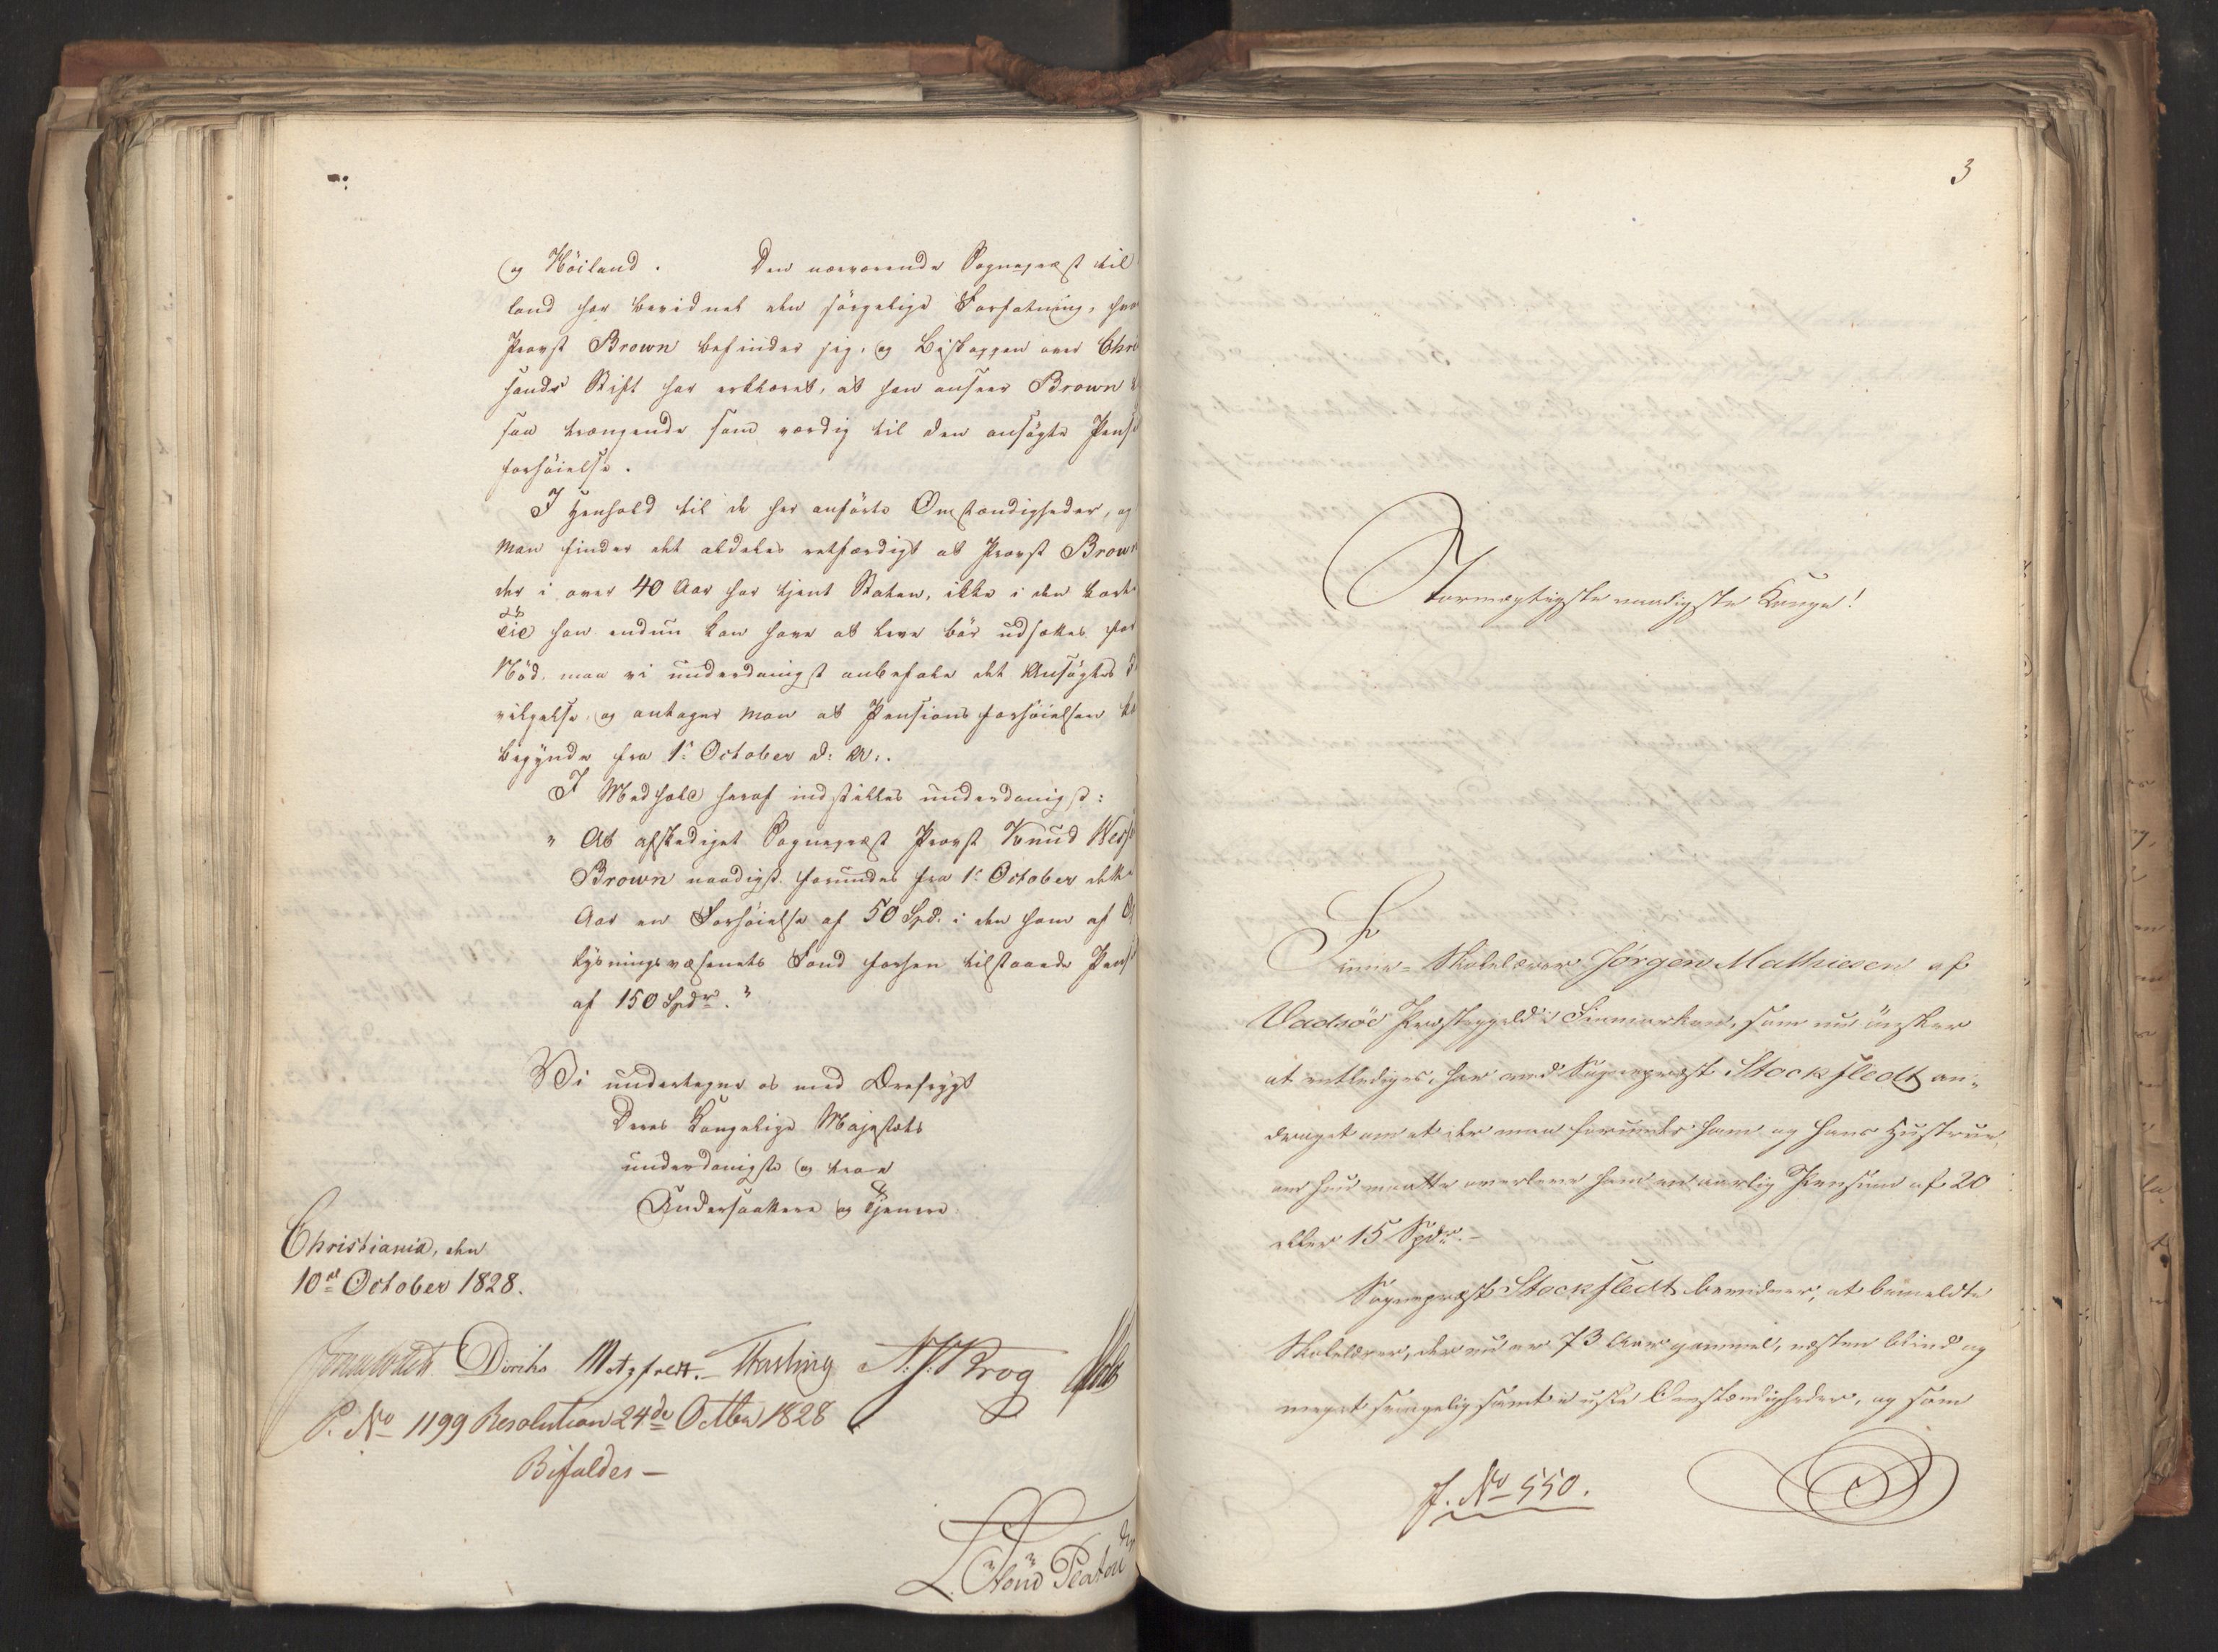 og Höiland. Den nærværende Sognepræst til
land har bevidnet den sörgelige Forfatning, hvo
Provst Brown befinder sig, og Biskoppen over Chri
sands Stift har erklæret, at han anseer Brown
saa trængende som værdig til den ansögte Pens
forhöielse.
I Henhold til de her anförte Omstændigheder, og
man finder det aldeles retfærdigt at Provst Brown
der i over 40 Aar har tjent Staten, ikke i den korte
Tid han endnu kan have at leve bör udsættes for
Nöd, maa vi underdanigst anbefale det Ansögtes
vilgelse, og antager man at Pensionsforhöielsen
begynde fra 1ˢ October d: A:.
I Medhold heraf indstilles underdanigst:
" At afskediget Sognepræst Provst Knud Wess
Brown naadigst forundes fra 1ˢ October dette
Aar en Forhöielse af 50 Spd. i den ham af
lysningsvæsenets Fond forhen tilstaaede Pens
af 150 Spdr. "
Vi undertegne os med Ærefrygt
Deres Kongelige Majestæts
underdanigste og troe
Undersaattere og Tjenere
Christiania, den
10de October 1828.
Diriks Motzfeldt. Fasting Krog
P. No 1199 Resolution 24de Octbr 1828
Bifaldes —
3
Stormægtigste naadigste Konge!
Finne-Skolelærer Jörgen Mathiesen af
Vadsöe Præstegjeld i Finmarken, som nu önsker
at entlediges, har ved Sognepræst Stockfledt an-
draget om at der maa forundes ham og hans Hustrue,
om hun maatte overleve ham en aarlig Pension af 20
eller 15 Spdr. -
Sognepræst Stockfledt bevidner, at bemeldte
Skolelærer, der nu er 73 Aar gammel, næsten blind og
meget svagelig samt i usle Omstændigheder, og som
J. No 550.